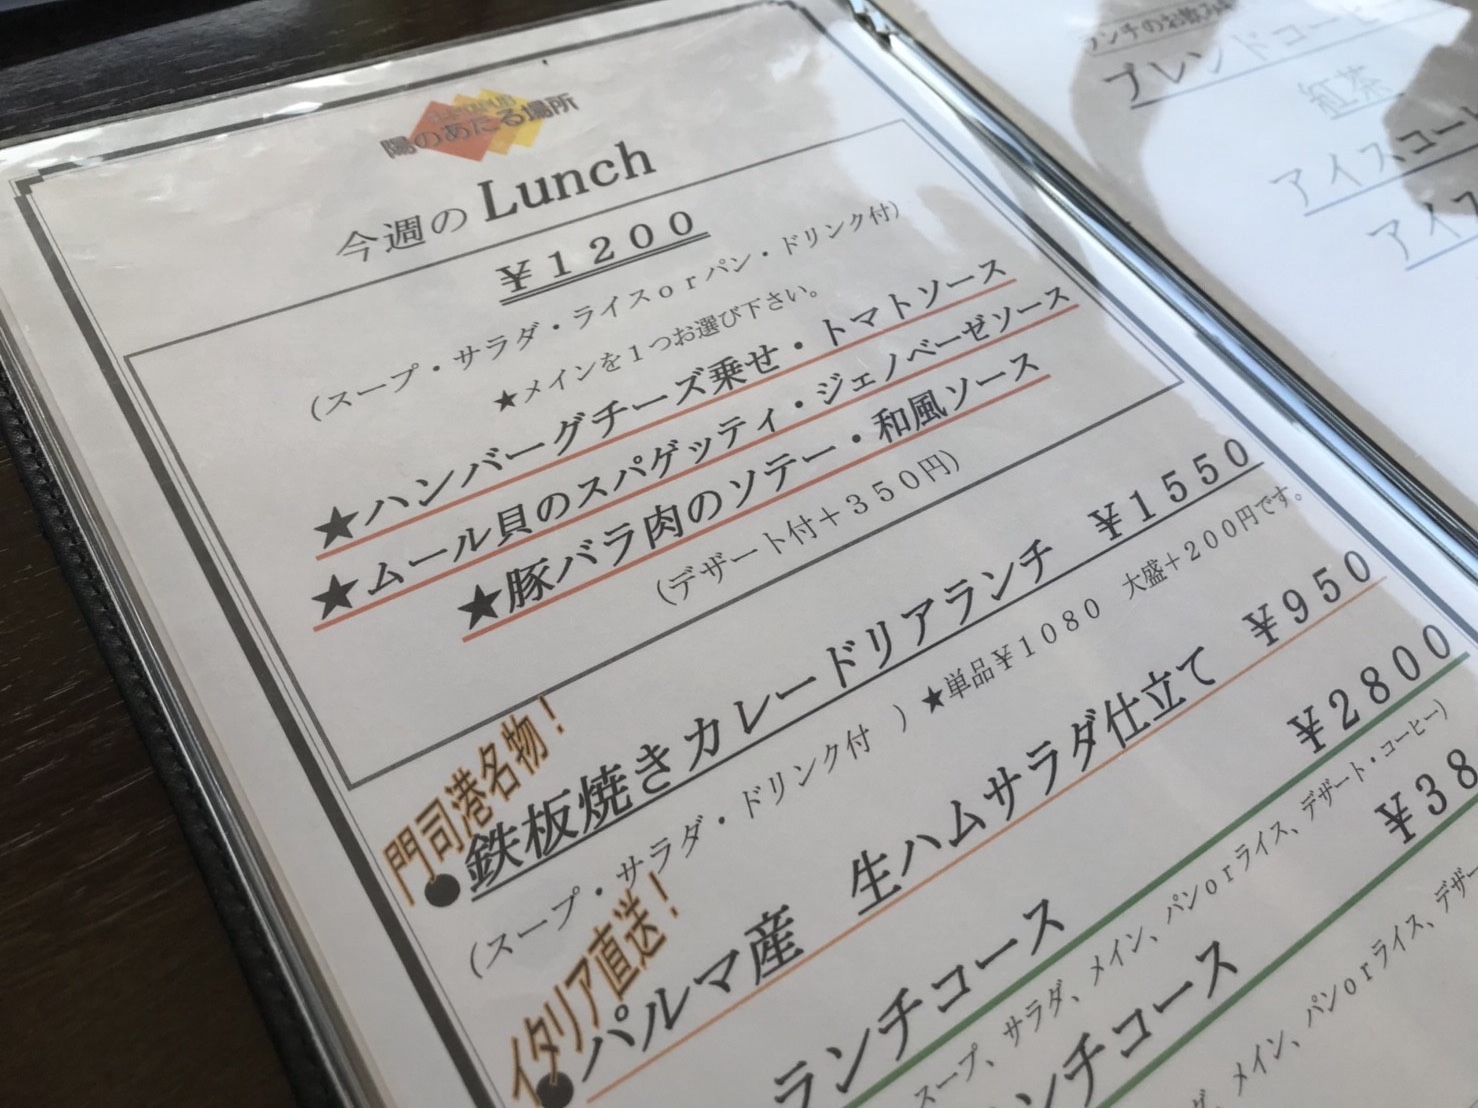 陽のあたる場所
今週の Lunch
￥１２００
（スープ・サラダ・ライスｏｒパン・ドリンク付）
★メインを１つお選び下さい。
★ハンバーグチーズ乗せ・トマトソース
★ムール貝のスパゲッティ・ジェノベーゼソース
★豚バラ肉のソテー・和風ソース
（デザート付＋３５０円）
門司港名物！
●鉄板焼きカレードリアランチ ￥１５５０
（スープ・サラダ・ドリンク付 ）★単品￥１０８０ 大盛＋２００円です。
イタリア直送！
●パルマ産 生ハムサラダ仕立て ￥９５０
ランチコース ￥２８００
スープ、サラダ、メイン、パンｏｒライス、デザート・コーヒー）
ンチコース ￥３８
メイン、パンｏｒライス、デザー
ンチのお飲み
ブレンドコーヒー
紅茶
アイスコーヒ
アイス